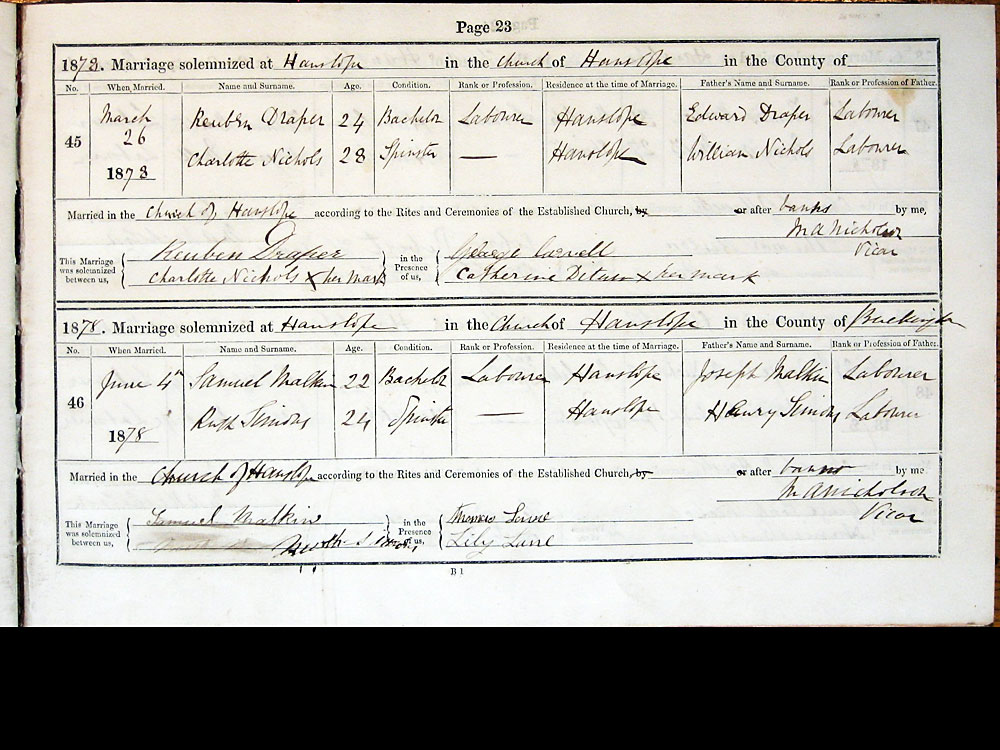 Page 23
1873. Marriage solemnized at Hanslope in the Church of Hanslope in the County of
No. When Married. Name and Surname. Age. Condition. Rank or Profession. Residence at the time of Marriage. Father's Name and Surname. Rank or Profession of Father.
45 March 26 1873
Reuben Draper 24 Bachelor Labourer Hanslope Edward Draper Labourer
Charlotte Nichols 28 Spinster — Hanslope William Nichols Labourer
Married in the Church of Hanslope according to the Rites and Ceremonies of the Established Church, by or after banns by me,
M A Nicholson
Vicar
This Marriage was solemnized between us, Reuben Draper in the Presence of us, George
Charlotte Nichols X her mark Catherine X her mark
1878. Marriage solemnized at Hanslope in the Church of Hanslope in the County of Buckingham
No. When Married. Name and Surname. Age. Condition. Rank or Profession. Residence at the time of Marriage. Father's Name and Surname. Rank or Profession of Father.
46 June 4th 1878
Samuel Malkin 22 Bachelor Labourer Hanslope Joseph Malkin Labourer
Ruth Simons 24 Spinster — Hanslope Henry Simons Labourer
Married in the Church of Hanslope according to the Rites and Ceremonies of the Established Church, by or after banns by me
M A Nicholson
Vicar
This Marriage was solemnized between us, Samuel Malkin in the Presence of us, Thomas
Lily Lane
B 1